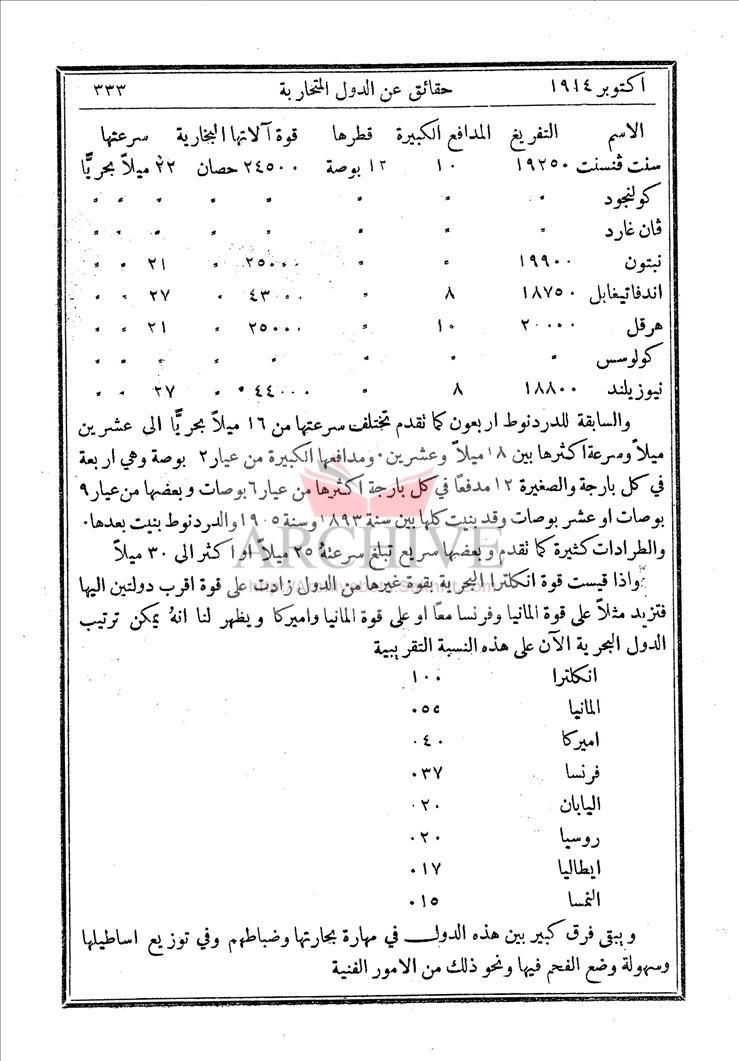 اكتوبر ١٩١٤ حقائق عن الدول المتحاربة ٣٣٣
الاسم التفريغ المدافع الكبيرة قطرها قوة آلاتها البخارية سرعتها
سنت ڤنسنت ١٩٢٥٠ ١٠ ١٢ بوصة ٢٤٥٠٠ حصان ٢٢ ميلاً بحريًّا
كولنجود " " " " " " " "
ڤان غارد " " " " " " " "
نبتون ١٩٩٠٠ " " ٢٥٠٠٠ " ٢١ " "
اندفاتيغابل ١٨٧٥٠ ٨ " ٤٣٠٠٠ " ٢٧ " "
هرقل ٢٠٠٠٠ ١٠ " ٢٥٠٠٠ " ٢١ " "
كولوسس " " " " " " " "
نيوزيلند ١٨٨٠٠ ٨ " ٤٤٠٠٠ " ٢٧ " "
والسابقة للدردنوط اربعون كما تقدم تختلف سرعتها من ١٦ ميلاً بحريًّا الى عشرين
ميلاً وسرعة اكثرها بين ١٨ ميلاً وعشرين ٠ ومدافعها الكبيرة من عيار ٢ بوصة وهي اربعة
في كل بارجة والصغيرة ١٢ مدفعًا في كل بارجة اكثرها من عيار ٦ بوصات وبعضها من عيار ٩
بوصات او عشر بوصات وقد بنيت كلها بين سنة ١٨٩٣ وسنة ١٩٠٥ والدردنوط بنيت بعدها٠
والطرادات كثيرة كما تقدم وبعضها سريع تبلغ سرعتهُ ٢٥ ميلاً او اكثر الى ٣٠ ميلاً
واذا قيست قوة انكلترا البحرية بقوة غيرها من الدول زادت على قوة اقرب دولتين اليها
فتزيد مثلاً على قوة المانيا وفرنسا معًا او على قوة المانيا واميركا ويظهر لنا انهُ يمكن ترتيب
الدول البحرية الآن على هذه النسبة التقريبية
انكلترا ١٠٠
المانيا ٠٥٥
اميركا ٠٤٠
فرنسا ٠٣٧
اليابان ٠٢٠
روسيا ٠٢٠
ايطاليا ٠١٧
النمسا ٠١٥
ويبقى فرق كبير بين هذه الدول في مهارة بحارتها وضباطهم وفي توزيع اساطيلها
وسهولة وضع الفحم فيها ونحو ذلك من الامور الفنية
ARCHIVE